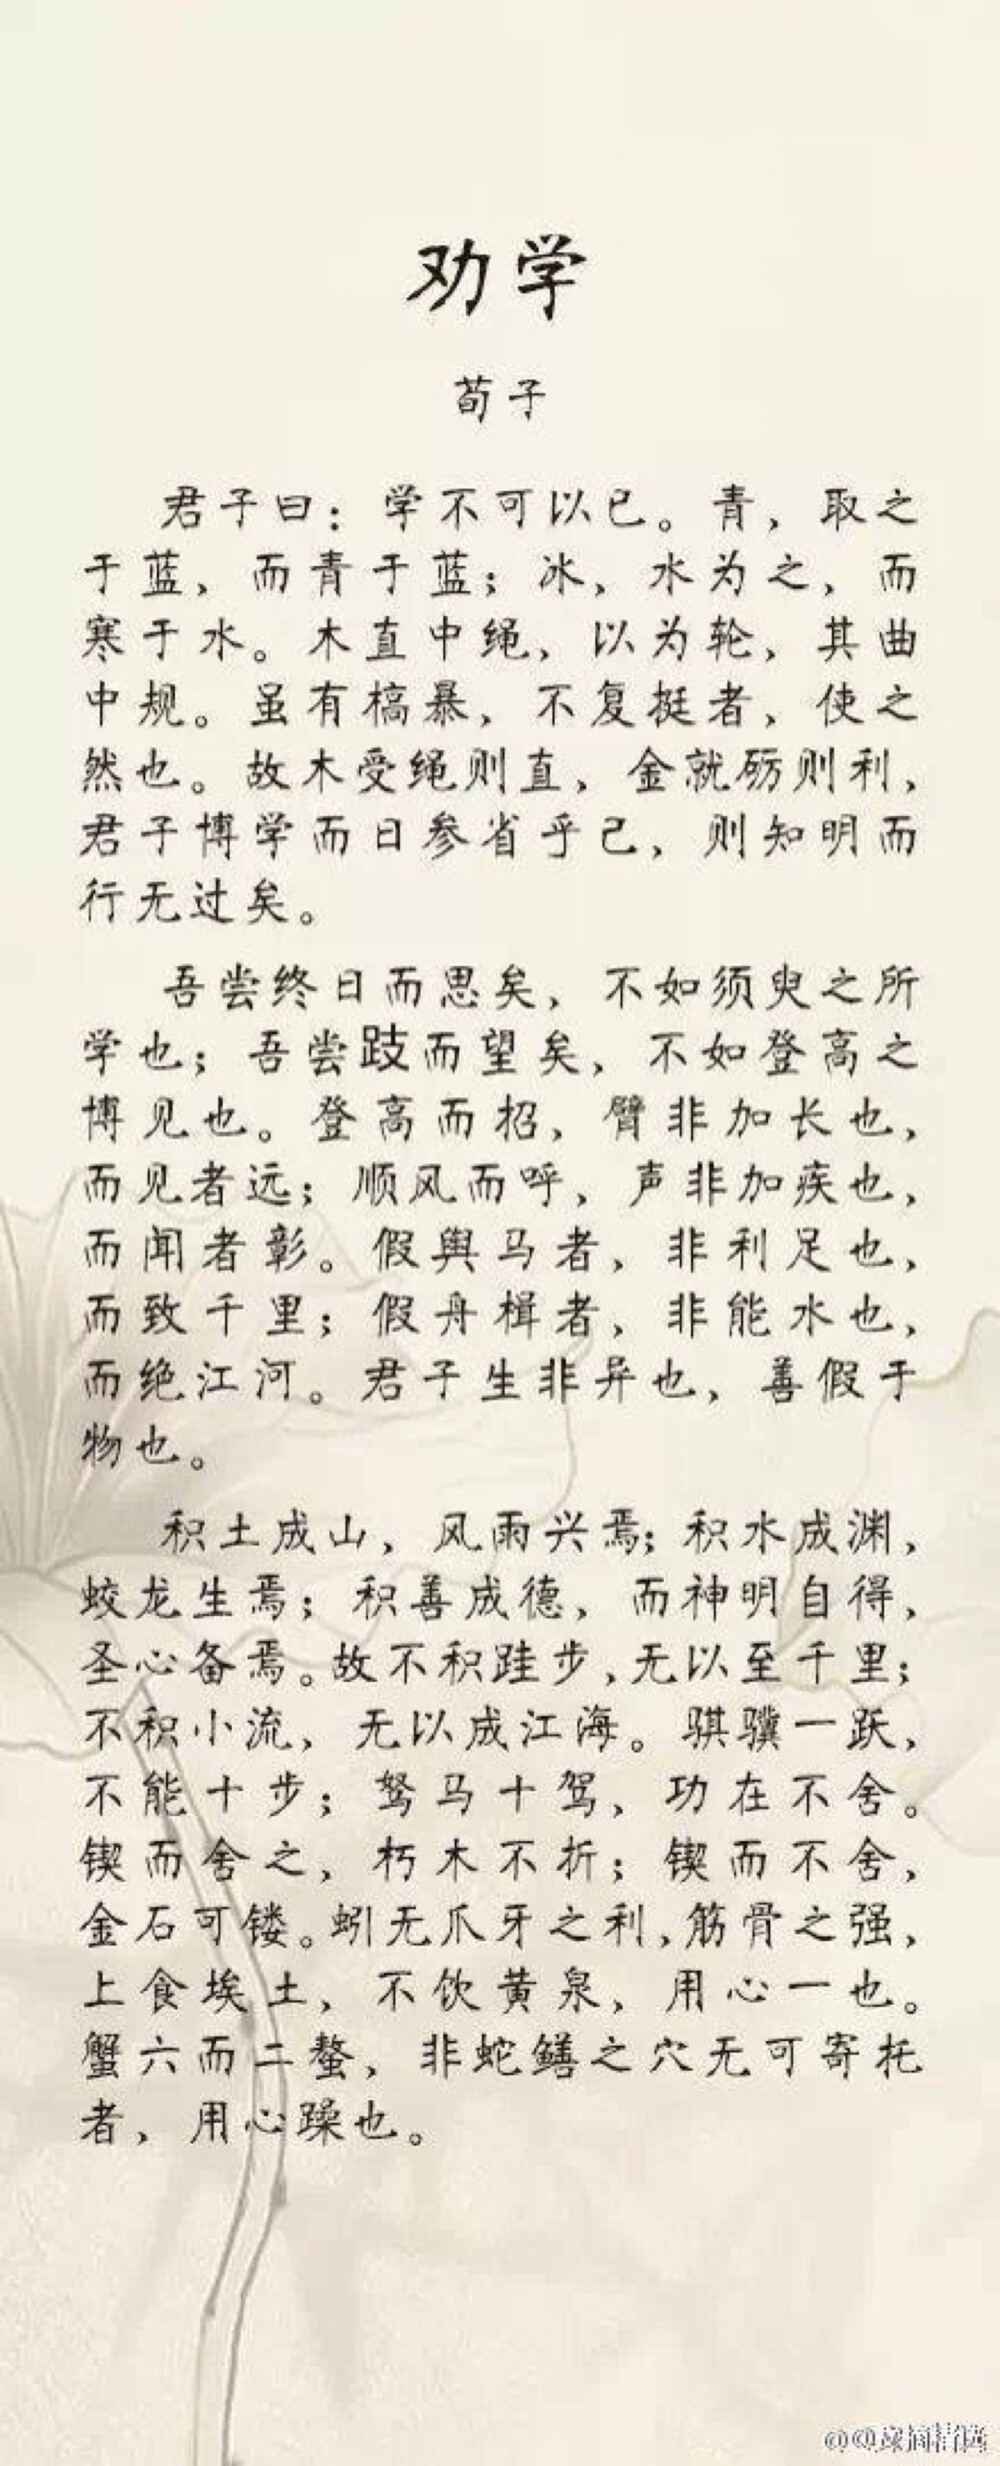 劝学
荀子
君子曰：学不可以已。青，取之
于蓝，而青于蓝；冰，水为之，而
寒于水。木直中绳，以为轮，其曲
中规。虽有槁暴，不复挺者，使之
然也。故木受绳则直，金就砺则利，
君子博学而日参省乎己，则知明而
行无过矣。
吾尝终日而思矣，不如须臾之所
学也；吾尝跂而望矣，不如登高之
博见也。登高而招，臂非加长也，
而见者远；顺风而呼，声非加疾也，
而闻者彰。假舆马者，非利足也，
而致千里；假舟楫者，非能水也，
而绝江河。君子生非异也，善假于
物也。
积土成山，风雨兴焉；积水成渊，
蛟龙生焉；积善成德，而神明自得，
圣心备焉。故不积跬步，无以至千里；
不积小流，无以成江海。骐骥一跃，
不能十步；驽马十驾，功在不舍。
锲而舍之，朽木不折；锲而不舍，
金石可镂。蚓无爪牙之利，筋骨之强，
上食埃土，不饮黄泉，用心一也。
蟹六而二螯，非蛇鳝之穴无可寄托
者，用心躁也。